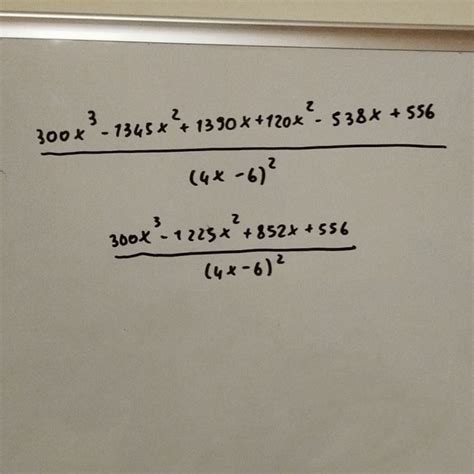 300x³ - 1345x² + 1390x + 120x² - 538x + 556
(4x - 6)²
300x³ - 1225x² + 852x + 556
(4x - 6)²